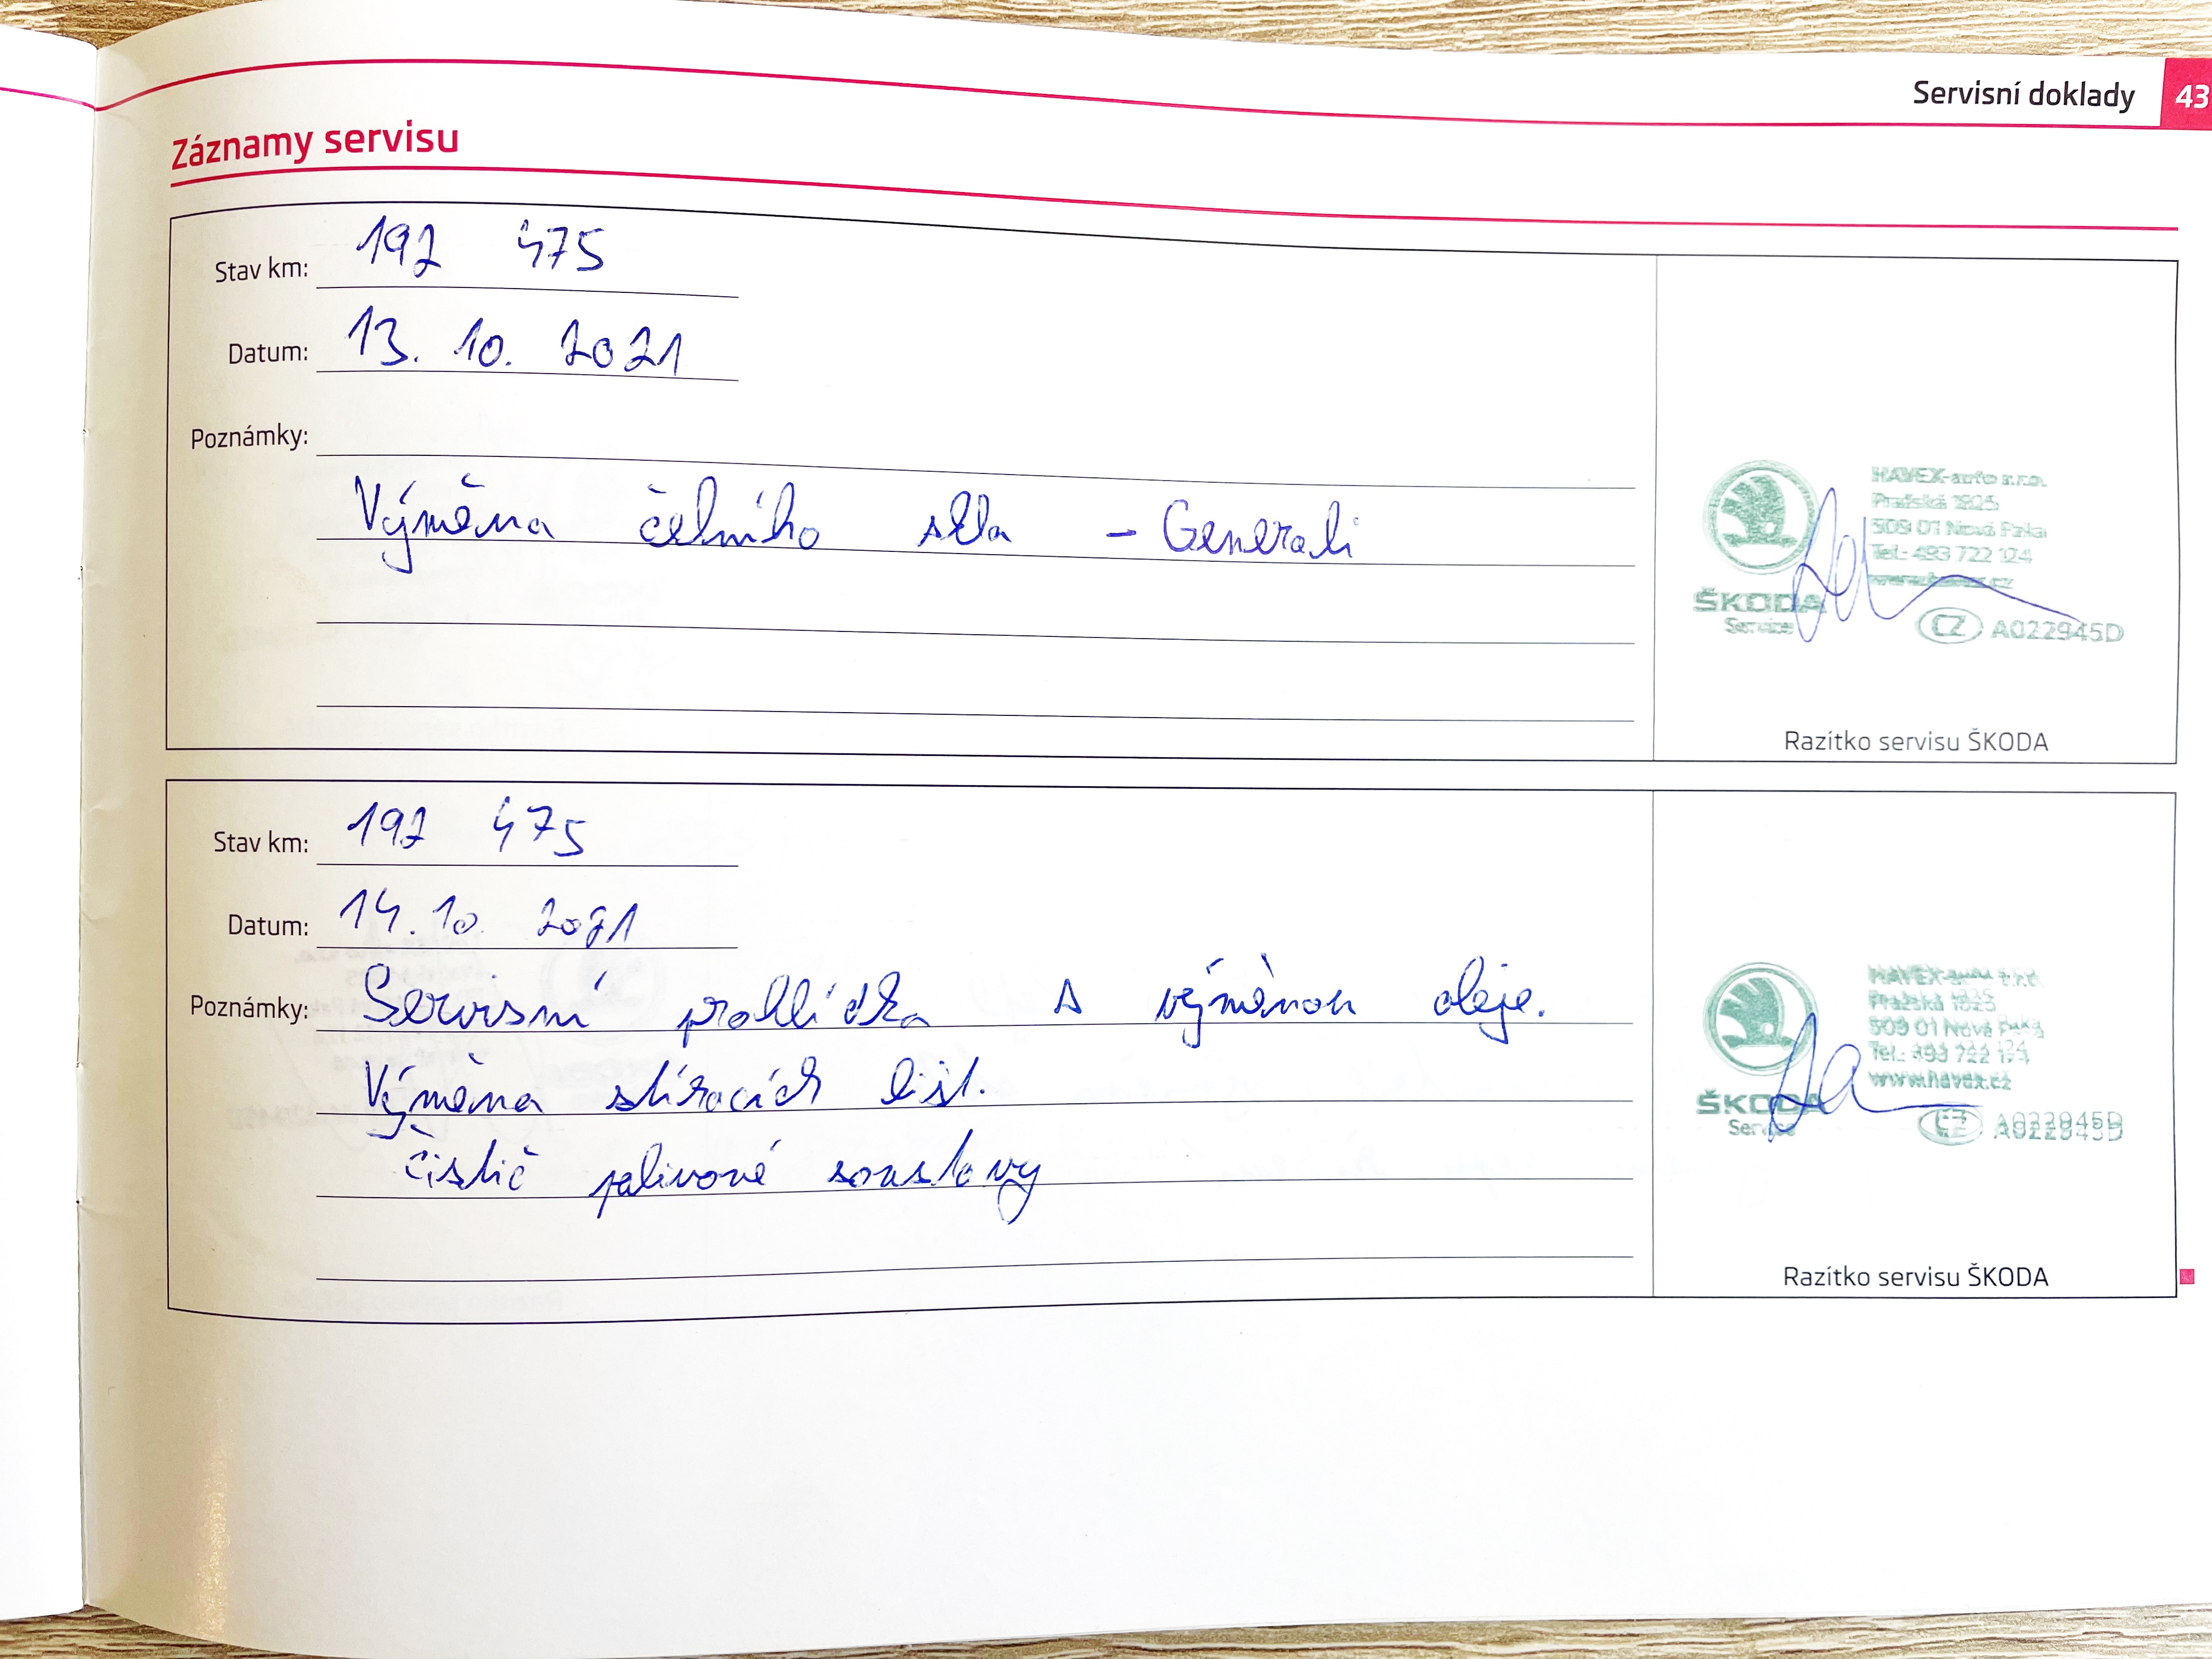 Servisní doklady 43
Záznamy servisu
Stav km: 192 475
Datum: 13. 10. 2021
Poznámky:
Výměna čelního skla - Generali
HAVEX-auto s.r.o.
Pražská 1925
509 01 Nová Paka
Tel.: 493 722 124
www.havex.cz
ŠKODA
Service
CZ A022945D
Razítko servisu ŠKODA
Stav km: 192 475
Datum: 14. 10. 2021
Poznámky: Servisní prohlídka s výměnou oleje.
Výměna stíracích lišt.
čistič palivové soustavy
HAVEX-auto s.r.o.
Pražská 1925
509 01 Nová Paka
Tel.: 493 722 124
www.havex.cz
ŠKODA
Service
CZ A022945D
Razítko servisu ŠKODA